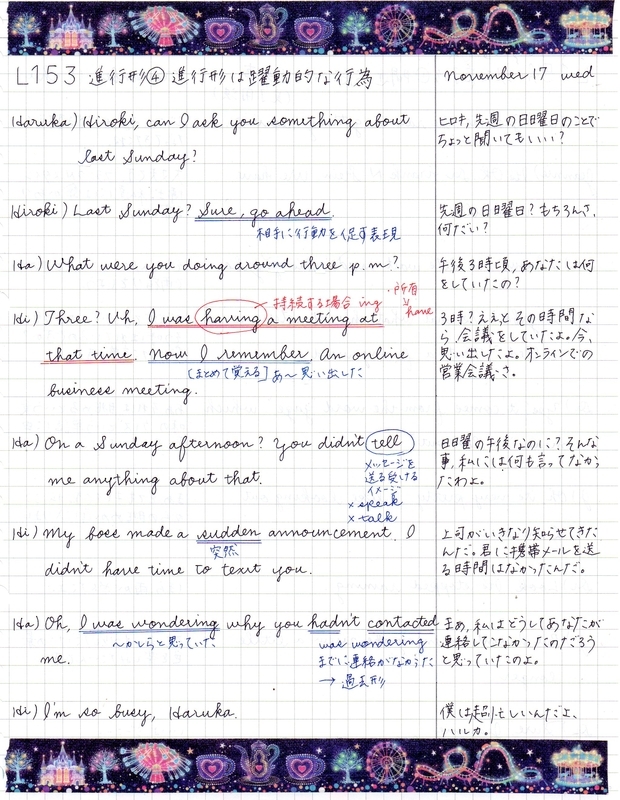 L153 進行形④ 進行形は躍動的な行為
November 17 wed
Haruka) Hiroki, can I ask you something about
last Sunday?
ヒロキ, 先週の日曜日のことで
ちょっと聞いてもいい?
Hiroki) Last Sunday? Sure, go ahead.
相手に行動を促す表現
先週の日曜日? もちろんさ,
何だい?
Ha) What were you doing around three p.m?
午後3時頃, あなたは何
をしていたの?
持続する場合 ing
・所有
have
Hi) Three? Uh, I was having a meeting at
that time. Now I remember. An online
[まとめて覚える] あ〜思い出した
business meeting.
3時? ええと その時間な
ら 会議をしていたよ。今,
思い出したよ。オンラインでの
営業会議さ。
Ha) On a Sunday afternoon? You didn't tell
me anything about that.
メッセージを
送る受ける
イメージ
× speak
× talk
日曜の午後なのに? そんな
事, 私には何も言ってなかっ
たわよ。
Hi) My boss made a sudden announcement. I
突然
didn't have time to text you.
上司がいきなり知らせてきた
んだ。君に携帯メールを送
る時間はなかったんだ。
Ha) Oh, I was wondering why you hadn't contacted
〜かしらと思っていた
me.
was wondering
までに連絡がなかった
→ 過去形
まあ, 私はどうしてあなたが
連絡してこなかったのだろう
と思っていたのよ。
Hi) I'm so busy, Haruka.
僕は超忙しいんだよ,
ハルカ。